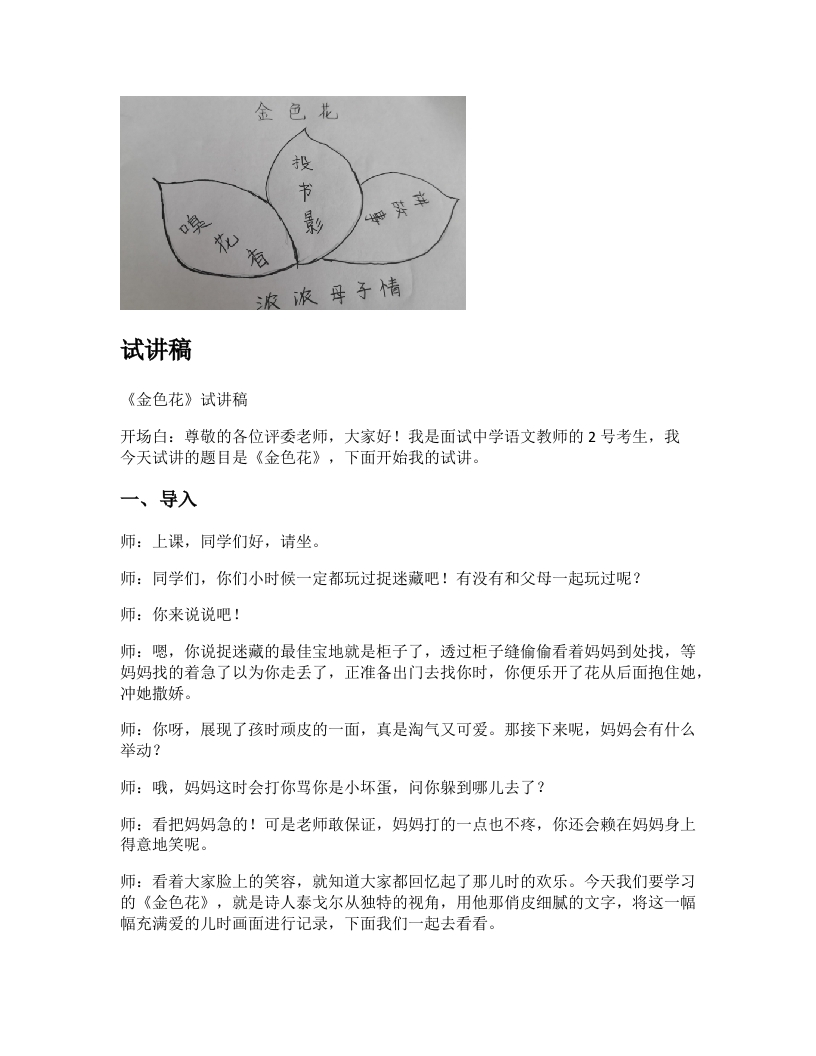 金色花
嗅花香
投书影
试讲稿
《金色花》试讲稿
开场白：尊敬的各位评委老师，大家好！我是面试中学语文教师的 2 号考生，我
今天试讲的题目是《金色花》，下面开始我的试讲。
一、导入
师：上课，同学们好，请坐。
师：同学们，你们小时候一定都玩过捉迷藏吧！有没有和父母一起玩过呢？
师：你来说说吧！
师：嗯，你说捉迷藏的最佳宝地就是柜子了，透过柜子缝偷偷看着妈妈到处找，等
妈妈找的着急了以为你走丢了，正准备出门去找你时，你便乐开了花从后面抱住她，
冲她撒娇。
师：你呀，展现了孩时顽皮的一面，真是淘气又可爱。那接下来呢，妈妈会有什么
举动？
师：哦，妈妈这时会打你骂你是小坏蛋，问你躲到哪儿去了？
师：看把妈妈急的！可是老师敢保证，妈妈打的一点也不疼，你还会赖在妈妈身上
得意地笑呢。
师：看着大家脸上的笑容，就知道大家都回忆起了那儿时的欢乐。今天我们要学习
的《金色花》，就是诗人泰戈尔从独特的视角，用他那俏皮细腻的文字，将这一幅
幅充满爱的儿时画面进行记录，下面我们一起去看看。
浓浓母子情